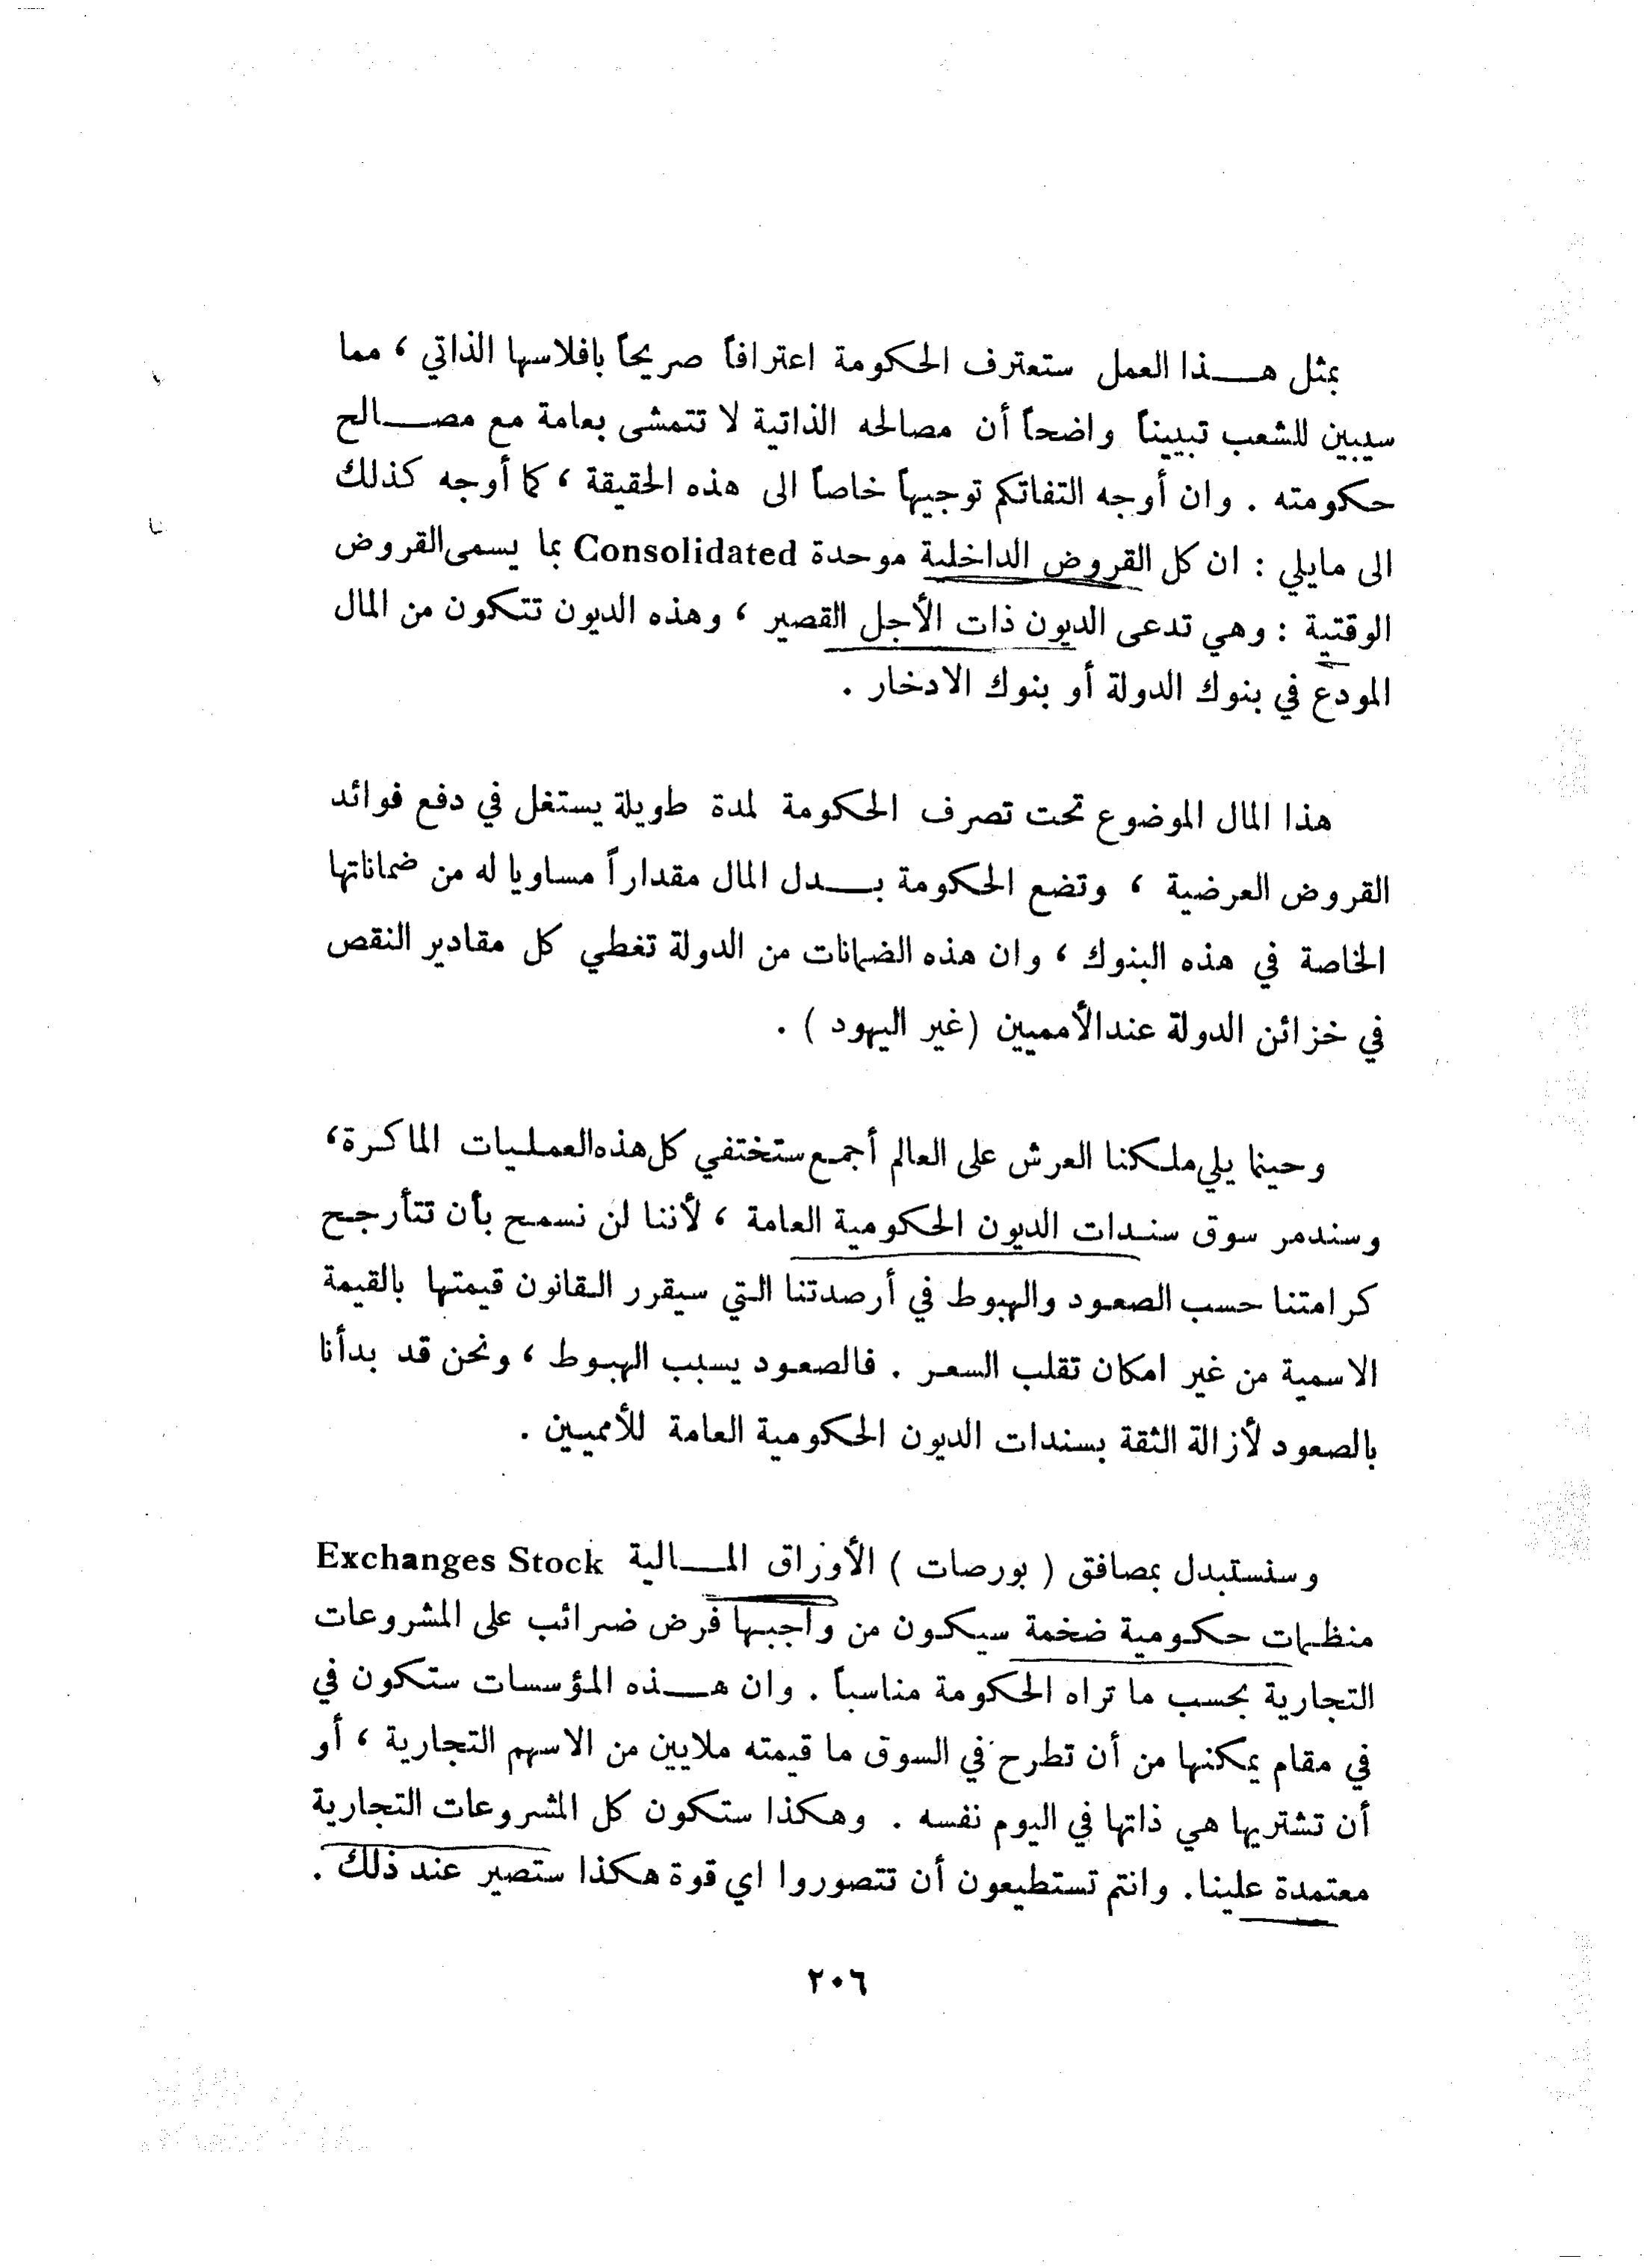 بمثل هـــذا العمل ستعترف الحكومة اعترافاً صريحاً بافلاسها الذاتي ، مما
سيبين للشعب تبييناً واضحاً أن مصالحه الذاتية لا تتمشى بعامة مع مصــالح
حكومته . وان أوجه التفاتكم توجيهاً خاصاً الى هذه الحقيقة ، كما أوجه كذلك
الى مايلي : ان كل القروض الداخلية موحدة Consolidated بما يسمى القروض
الوقتية : وهي تدعى الديون ذات الأجل القصير ، وهذه الديون تتكون من المال
المودع في بنوك الدولة أو بنوك الادخار .
هذا المال الموضوع تحت تصرف الحكومة لمدة طويلة يستغل في دفع فوائد
القروض العرضية ، وتضع الحكومة بــدل المال مقداراً مساويا له من ضماناتها
الخاصة في هذه البنوك ، وان هذه الضمانات من الدولة تغطي كل مقادير النقص
في خزائن الدولة عند الأمميين (غير اليهود ) .
وحينما يلي ملكنا العرش على العالم أجمع ستختفي كل هذه العمليات الماكرة،
وسندمر سوق سندات الديون الحكومية العامة ، لأننا لن نسمح بأن تتأرجح
كرامتنا حسب الصعود والهبوط في أرصدتنا التي سيقرر القانون قيمتها بالقيمة
الاسمية من غير امكان تقلب السعر . فالصعود يسبب الهبوط ، ونحن قد بدأنا
بالصعود لأزالة الثقة بسندات الديون الحكومية العامة للأمميين .
وسنستبدل بمصافق ( بورصات ) الأوراق المــالية Exchanges Stock
منظمات حكومية ضخمة سيكون من واجبها فرض ضرائب على المشروعات
التجارية بحسب ما تراه الحكومة مناسباً . وان هـــذه المؤسسات ستكون في
في مقام يمكنها من أن تطرح في السوق ما قيمته ملايين من الاسهم التجارية ، أو
أن تشتريها هي ذاتها في اليوم نفسه . وهكذا ستكون كل المشروعات التجارية
معتمدة علينا. وانتم تستطيعون أن تتصوروا اي قوة هكذا ستصير عند ذلك .
٢٠٦